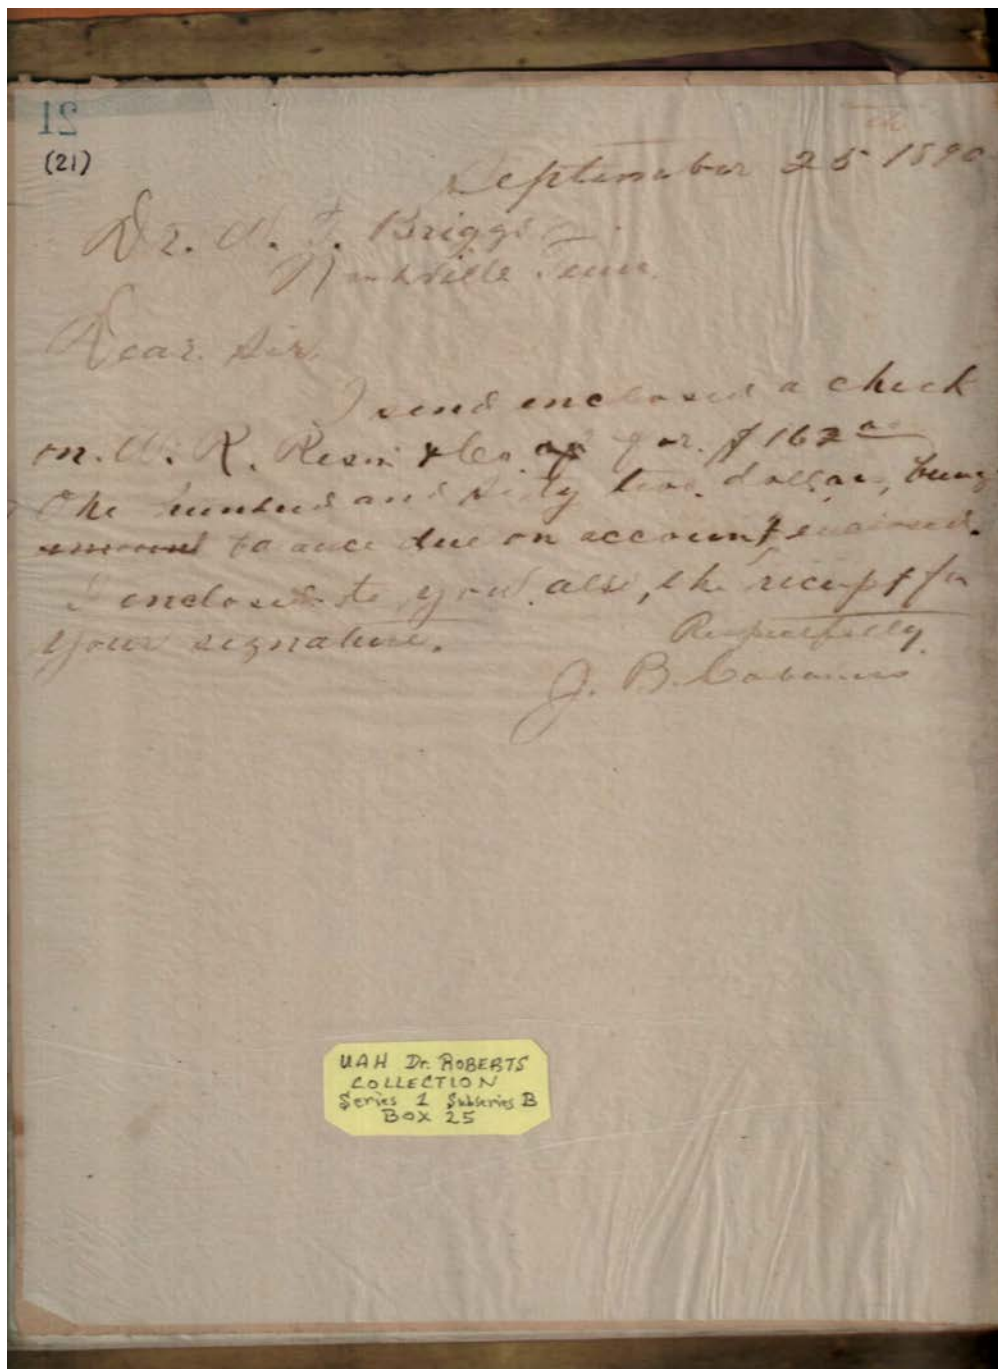 21
(21)
September 25th 1890
Dr. W. T. Briggs
Nashville Tenn.
Dear Sir,
I send enclosed a check
on W. R. & Co. for $162.00
One hundred and sixty two dollars, being
amount balance due on account enclosed.
I enclose to you, also, the receipt for
your signature. Respectfully
J. B. Cabaniss
UAH Dr. ROBERTS
COLLECTION
Series 1 Subseries B
BOX 25